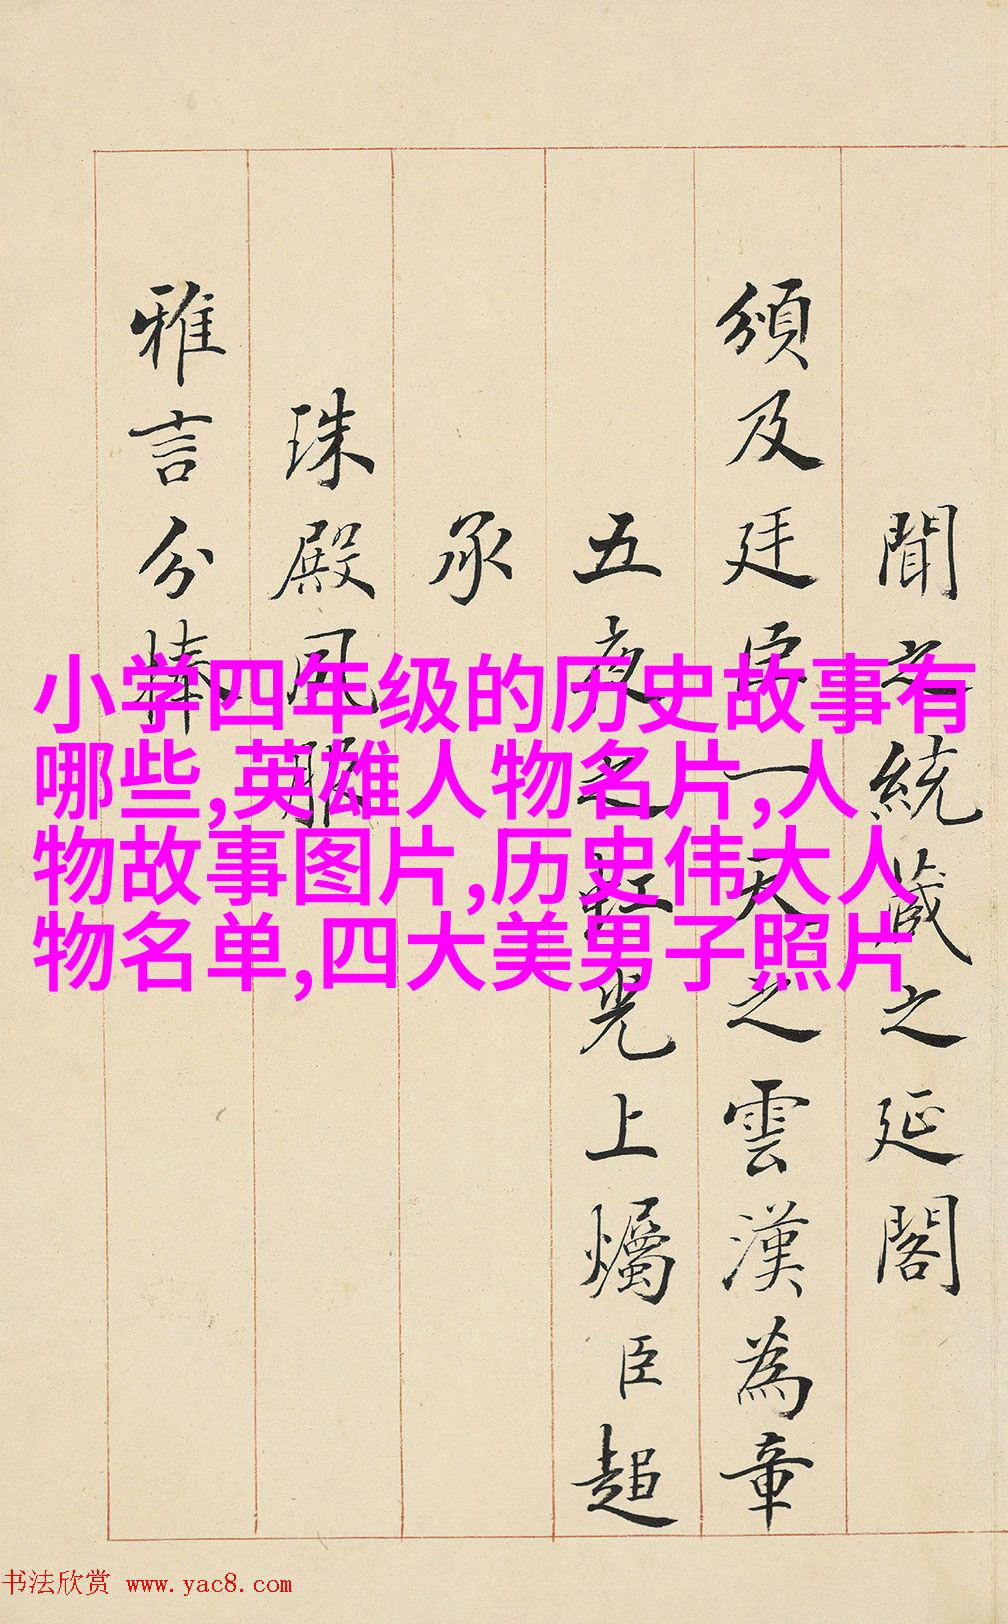 聞之統藏之延閣
頒及廷臣一天之雲漢為章
五夜之虹光上燭臣超
承
珠殿風
雅言分捧
小学四年级的历史故事有
哪些,英雄人物名片,人
物故事图片,历史伟大人
物名单,四大美男子照片
书法欣赏 www.yac8.com